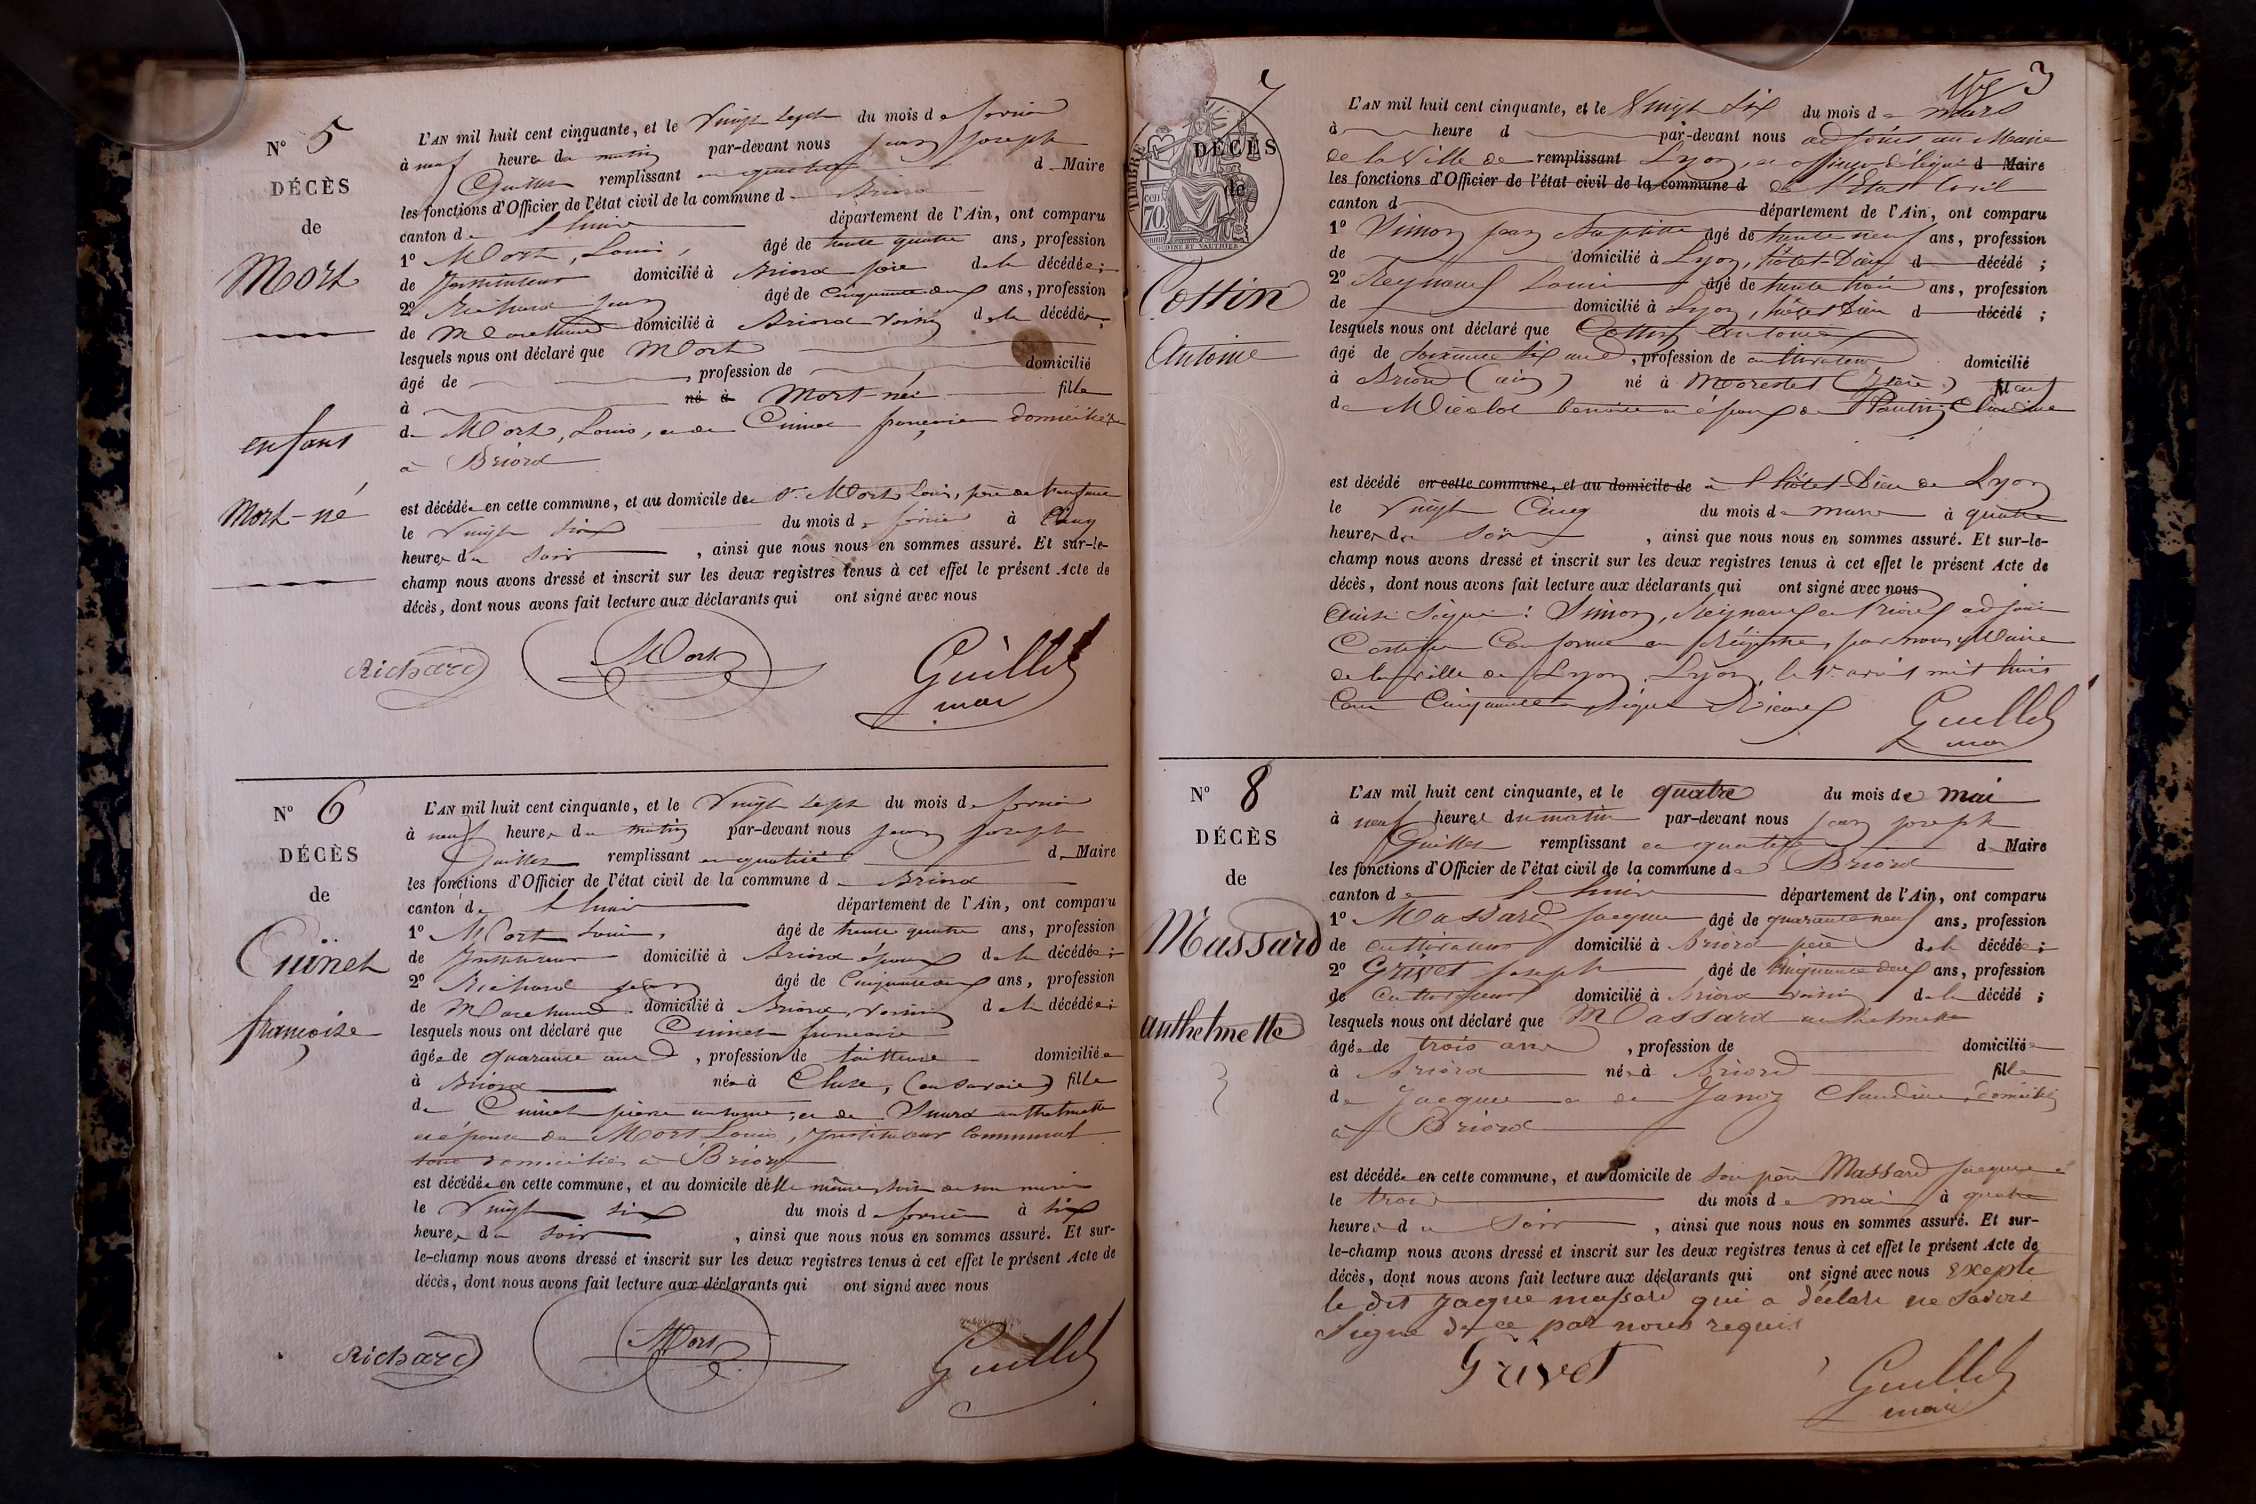 N° 5
DÉCÈS
de
Mort
enfant
Mort-né
L'AN mil huit cent cinquante, et le Vingt Sept du mois de février
à neuf heures du matin par-devant nous Jean Joseph
Guillet remplissant en qualité de Maire
les fonctions d'Officier de l'état civil de la commune de Briord
canton de département de l'Ain, ont comparu
1° Mort, Louis, âgé de trente quatre ans, profession
de Instituteur domicilié à Briord père de la décédée;
2° Richard Jean âgé de Cinquante deux ans, profession
de Marchand domicilié à Briord voisin de la décédée,
lesquels nous ont déclaré que Mort
âgé de , profession de domicilié
à né à Mort-née fille
de Mort, Louis, et de Cuinet françoise domiciliés
à Briord
est décédée en cette commune, et au domicile de Sr. Mort Louis, père de l'enfant
le Vingt Six du mois de février à Cinq
heures du Soir , ainsi que nous nous en sommes assuré. Et sur-le-
champ nous avons dressé et inscrit sur les deux registres tenus à cet effet le présent Acte de
décès, dont nous avons fait lecture aux déclarants qui ont signé avec nous
Richard Mort Guillet
maire
N° 6
DÉCÈS
de
Cuinet
françoise
L'AN mil huit cent cinquante, et le Vingt Sept du mois de février
à neuf heures du matin par-devant nous Jean Joseph
Guillet remplissant en qualité de Maire
les fonctions d'Officier de l'état civil de la commune de Briord
canton de département de l'Ain, ont comparu
1° Mort Louis, âgé de trente quatre ans, profession
de Instituteur domicilié à Briord époux de la décédée;
2° Richard Jean âgé de Cinquante deux ans, profession
de Marchand domicilié à Briord, voisin de la décédée;
lesquels nous ont déclaré que Cuinet françoise
âgée de quarante ans , profession de tailleuse domiciliée
à Briord née à Cluse, (en Savoie) fille
de Cuinet pierre antoine, et de anthelmette
et épouse de Mort Louis, Instituteur Communal
tous domiciliés à Briord
est décédée en cette commune, et au domicile de son mari
le Vingt six du mois de février à six
heures du soir , ainsi que nous nous en sommes assuré. Et sur-
le-champ nous avons dressé et inscrit sur les deux registres tenus à cet effet le présent Acte de
décès, dont nous avons fait lecture aux déclarants qui ont signé avec nous
Richard Mort Guillet
3
7
TIMBRE
70
DÉCÈS
de
Cottin
Antoine
L'AN mil huit cent cinquante, et le Vingt Six du mois de mars
à heure d par-devant nous adjoint au Maire
de la Ville de remplissant Lyon, et officier délégué d Maire
les fonctions d'Officier de l'état civil de la commune d de l'Etat Civil
canton d département de l'Ain, ont comparu
1° Simon Jean Baptiste âgé de trente neuf ans, profession
de domicilié à Lyon, hôtel-Dieu d décédé ;
2° Reynaud Louis âgé de trente trois ans, profession
de domicilié à Lyon, hôtel Dieu d décédé ;
lesquels nous ont déclaré que Cottin Antoine
âgé de Soixante Six ans , profession de cultivateur domicilié
à Briord (ain) né à Morestel (Isère) fils
de benoite et époux de Claudine
est décédé en cette commune, et au domicile de à l'hôtel-Dieu de Lyon
le Vingt Cinq du mois de mars à quatre
heures du Soir , ainsi que nous nous en sommes assuré. Et sur-le-
champ nous avons dressé et inscrit sur les deux registres tenus à cet effet le présent Acte de
décès, dont nous avons fait lecture aux déclarants qui ont signé avec nous
Ainsi Signé: Simon, Reynaud et adjoint
Certifié Conforme au Régistre, par nous, Maire
de la ville de Lyon. Lyon, le 1er. avril mil huit
Cent Cinquante Signé
Guillet
maire
N° 8
DÉCÈS
de
Massard
anthelmette
L'AN mil huit cent cinquante, et le quatre du mois de mai
à neuf heures du matin par-devant nous Jean Joseph
Guillet remplissant en qualité de Maire
les fonctions d'Officier de l'état civil de la commune de Briord
canton de département de l'Ain, ont comparu
1° Massard Jacque âgé de quarante neuf ans, profession
de cultivateur domicilié à Briord père de la décédée;
2° Grivet Joseph âgé de Cinquante deux ans, profession
de cultivateur domicilié à Briord voisin de la décédé ;
lesquels nous ont déclaré que Massard anthelmette
âgée de trois ans , profession de domiciliée
à Briord née à Briord fille
de Jacque et de Janoz Claudine, domiciliés
à Briord
est décédée en cette commune, et au domicile de son père Massard Jacque
le trois du mois de mai à quatre
heures du Soir , ainsi que nous nous en sommes assuré. Et sur-
le-champ nous avons dressé et inscrit sur les deux registres tenus à cet effet le présent Acte de
décès, dont nous avons fait lecture aux déclarants qui ont signé avec nous Excepte
le dit Jacque massard qui a déclaré ne Savoir
Signé de ce par nous requis
Grivet Guillet
maire